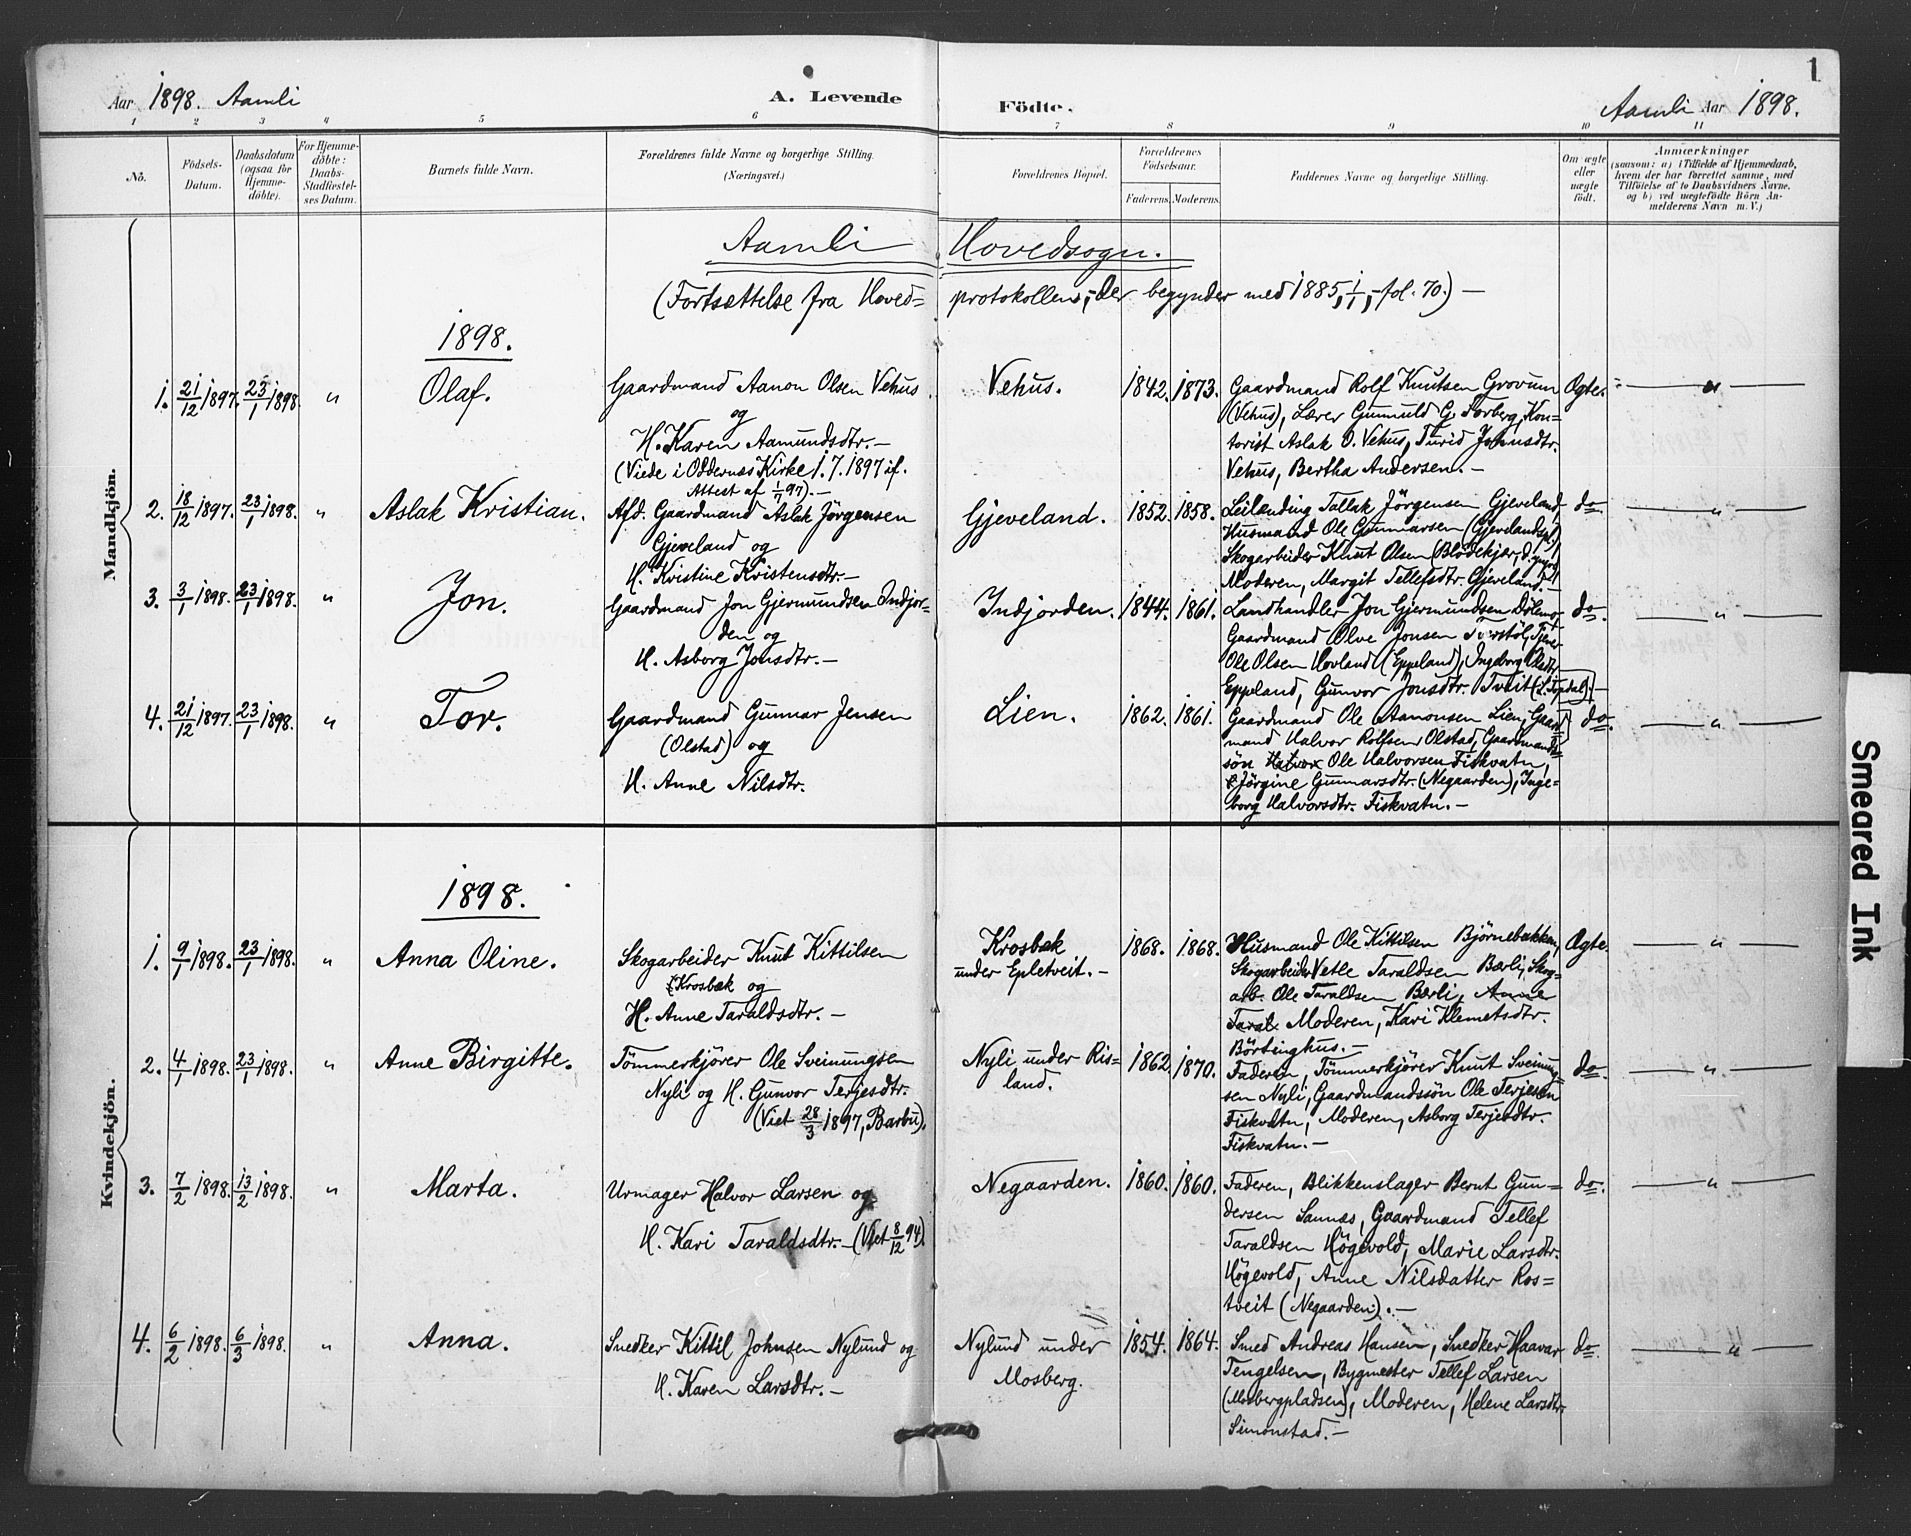 1
Aar 1898. Aamli A. Levende Födte. Aamli Aar 1898.
1 2 3 4 5 6 7 8 9 10 11
No.
Födsels-
Datum.
Daabsdatum
(ogsaa for
Hjemme-
döbte).
For Hjemme-
döbte:
Daabs-
Stadfæstel-
ses Datum.
Barnets fulde Navn.
Forældrenes fulde Navne og borgerlige Stilling.
(Næringsvei.)
Forældrenes Bopæl.
Forældrenes
Födselsaar.
Faderens. Moderens.
Faddernes Navne og borgerlige Stilling.
Om ægte
eller
uægte
født.
Anmærkninger
(saasom: a) i Tilfælde af Hjemmedaab,
hvem der har forrettet samme, med
Tilföielse af to Daabsvidners Navne,
og b) ved uægtefödte Börn An-
melderens Navn m. V.)
Aamli Hovedsogn.
(Fortsættelse fra Hoved= protokollen, der begynder med 1885, 1/1, fol. 70.) —
Mandkjön.
1898.
1. 21/12 1897. 23/1 1898. "
Olaf.
Gaardmand Aanon Olsen Vehus
og
H. Karen Aamundsdtr. —
(Viede i Oddernæs Kirke 1.7.1897 if.
Attest af 1/7 97). —
Vehus.
1842. 1873.
Gaardmand Rolf Knutsen Grovum
(Vehus), Lærer Gunnuld G. Torberg, Kon=
torist Aslak O. Vehus, Turid Johnsdtr.
Vehus, Bertha Andersen. —
Ægte. — " —
2. 18/12 1897. 23/1 1898. "
Aslak Kristian.
Afd. Gaardmand Aslak Jörgensen
Gjeveland og
H. Kristine Kristensdtr. —
Gjeveland.
1852. 1858.
Leilænding Tallak Jörgensen Gjeveland,
Husmand Ole Gunnarsen (Gjevelandspl.)
Skogarbeider Knut Olsen (Blödekjær,
Moderen, Margit Tellefsdtr. Gjeveland. —
do. — " —
3. 3/1 1898. 23/1 1898. "
Jon.
Gaardmand Jon Gjermundsen Indjor-
den og
H. Asborg Jonsdtr. —
Indjorden.
1844. 1861.
Landhandler Jon Gjermundsen Dölemo,
Gaardmand Olve Jonsen Tverstöl, Tjener
Ole Olsen Hovland (Eppeland), Ingeborg Olsdtr.
Eppeland, Gunvor Jonsdtr. Tveit (i Topdal). —
do. — " —
4. 21/12 1897. 23/1 1898. "
Tor.
Gaardmand Gunnar Jensen
(Olstad) og
H. Anne Nilsdtr.
Lien.
1862. 1861.
Gaardmand Ole Aanonsen Lien, Gaard=
mand Halvor Rolfsen Olstad, Gaardmands=
sön Halvor Ole Halvorsen Fiskvatn,
Jörgine Gunnarsdtr. (Negaarden), Inge=
borg Halvorsdtr. Fiskvatn. —
do. — " —
Kvindekjön.
1898.
1. 9/1 1898. 23/1 1898. "
Anna Oline.
Skogarbeider Knut Kittilsen
Krosbæk og
H. Anne Taraldsdtr. —
Krosbæk
under Epletveit. —
1868. 1868.
Husmand Ole Kittilsen Björnebakken,
Skogarbeider Vetle Taraldsen Bærli, Skog-
arb. Ole Taraldsen Bærli, Anne
Taral Moderen, Kari Klemetsdtr.
Börtinghus. —
Ægte — " —
2. 4/1 1898. 23/1 1898. "
Anne Birgitte.
Tömmerkjörer Ole Sveinungsen
Nyli og H. Gunvor Terjesdtr.
(Viet 28/3 1897, Barbu).
Nyli under Ris=
land.
1862 1870.
Faderen, Tömmerkjörer Knut Sveinung=
sen Nyli, Gaardmandssön Ole Terjesen
Fiskvatn, Moderen, Asborg Terjesdtr.
Fiskvatn. —
do. — " —
3. 7/2 1898. 13/2 1898. "
Marta.
Urmager Halvor Larsen og
H. Kari Taraldsdtr. — (Viet 8/12 94).
Negaarden.
1860. 1860.
Faderen, Blikkenslager Bernt Gun=
dersen Sannæs, Gaardmand Tellef
Taraldsen Högevold, Marie Larsdtr.
Högevold, Anne Nilsdatter Ros=
tveit (Negaarden). —
do. — " —
4. 6/2 1898. 6/3 1898. "
Anna.
Snedker Kittil Johnsen Nylund og
H. Karen Larsdtr. —
Nylund under
Mosberg.
1854. 1864.
Smed Andreas Hansen, Snedker Haavar
Tengelsen, Bygmester Tellef Larsen
(Mosbergpladsen), Moderen, Helene Larsdtr.
Simonstad. —
do. — " —
Smeared Ink